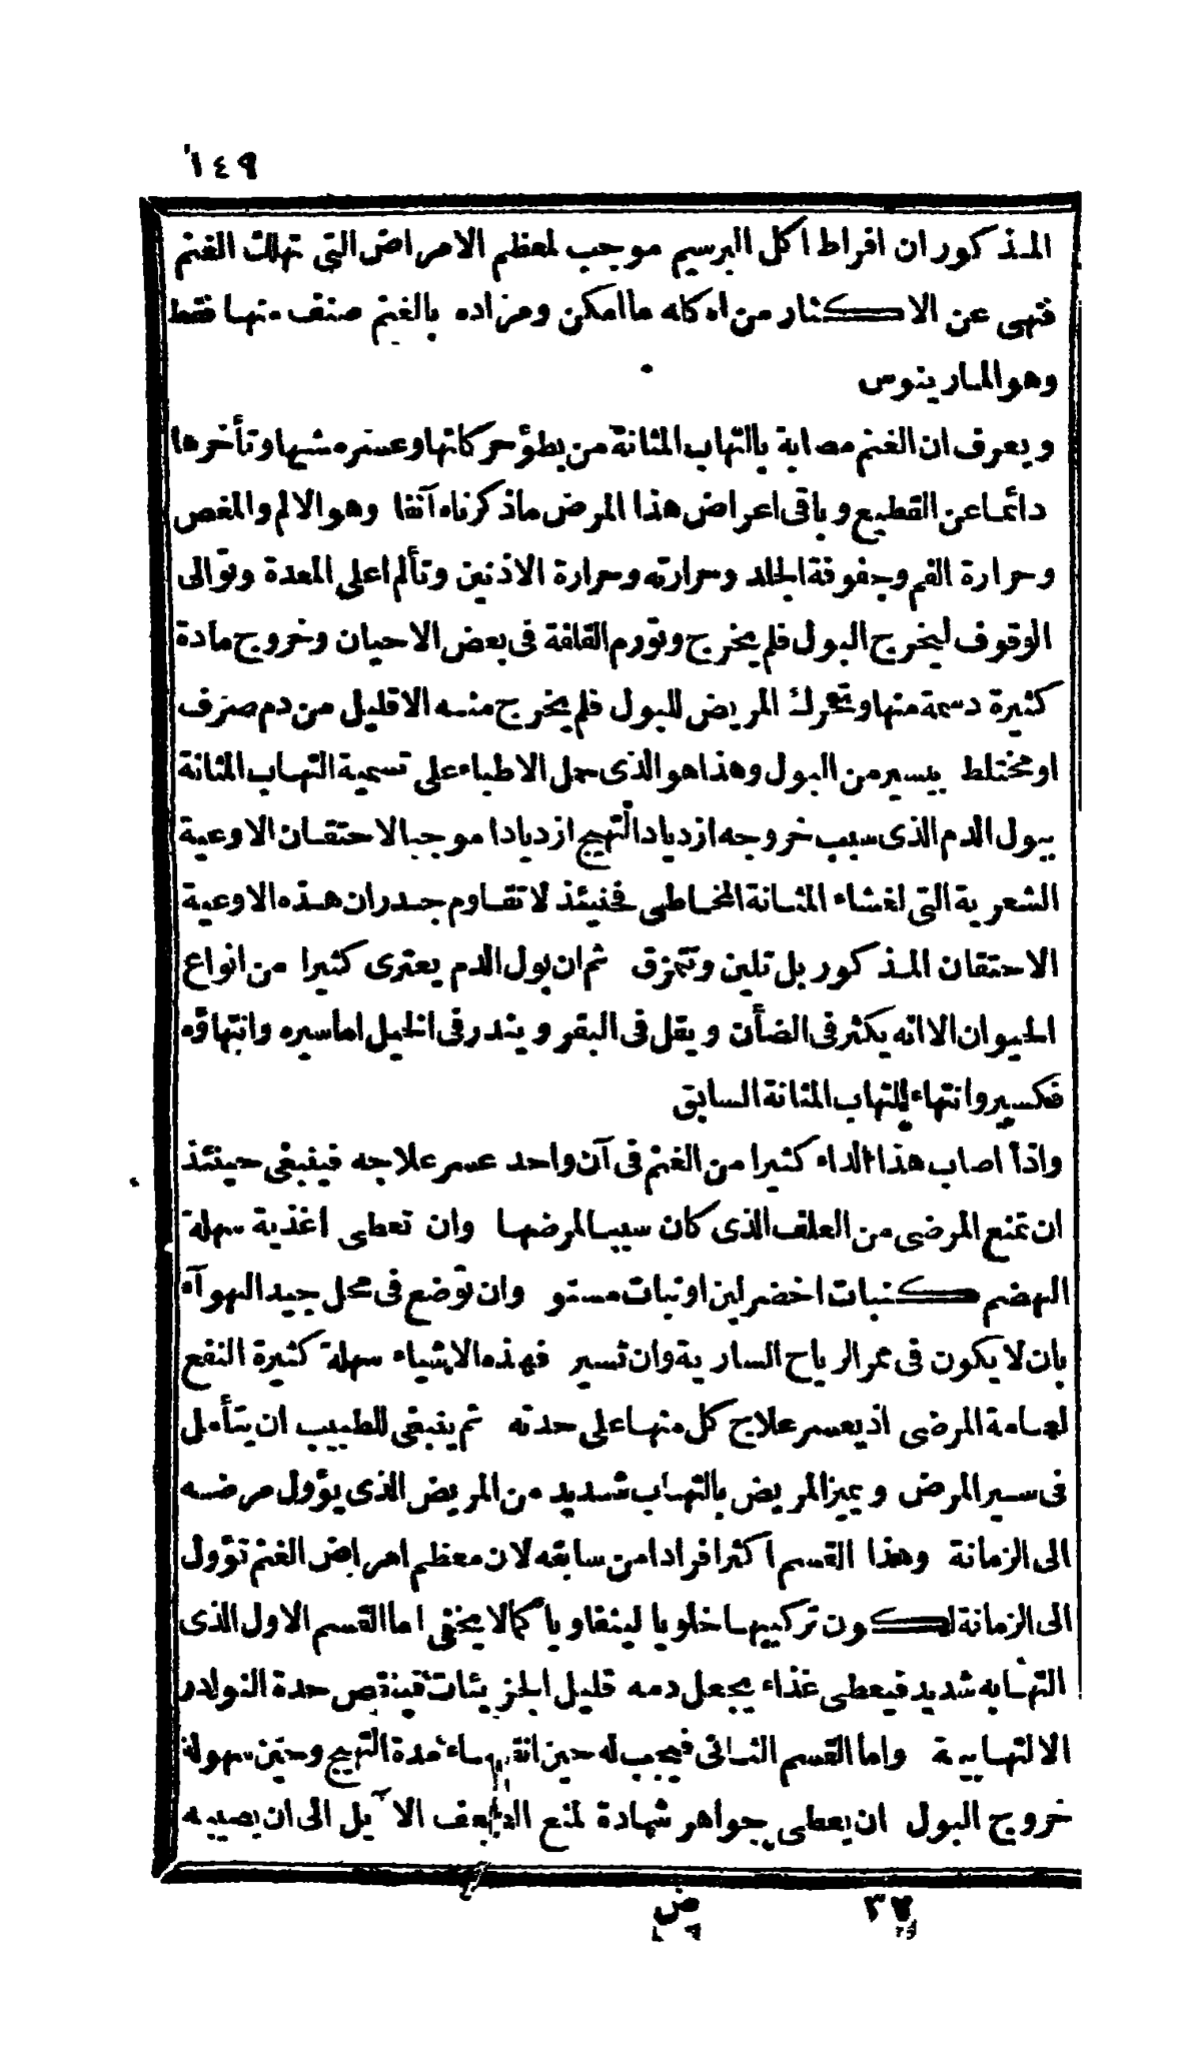 ١٤٩
المذكور ان افراط اكل البرسيم موجب لمعظم الامراض التى تهلك الغنم
فنهى عن الاكثار من اكله ما امكن ومراده بالغنم صنف منها فقط
وهو المارينوس
ويعرف ان الغنم مصابة بالتهاب المثانة من بطؤ حركاتها وعسر مشيها وتأخرها
دائما عن القطيع وباقى اعراض هذا المرض ما ذكرناه آنفا وهو الالم والمغص
وحرارة الفم وجفوفة الجلد وحرارته وحرارة الاذنين وتألم اعلى المعدة وتوالى
الوقوف ليخرج البول فلم يخرج وتورم القلفة فى بعض الاحيان وخروج مادة
كثيرة دسمة منها وتحرك المريض للبول فلم يخرج منه الا قليل من دم صرف
او مختلط بيسير من البول وهذا هو الذى حمل الاطباء على تسمية التهاب المثانة
ببول الدم الذى سبب خروجه ازدياد التهيج ازديادا موجبا لاحتقان الاوعية
الشعرية التى لغشاء المثانة المخاطى فحينئذ لا تقاوم جدران هذه الاوعية
الاحتقان المذكور بل تلين وتتمزق ثم ان بول الدم يعترى كثيرا من انواع
الحيوان الا انه يكثر فى الضأن ويقل فى البقر ويندر فى الخيل اما سيره وانتهاؤه
فكسير وانتهاء التهاب المثانة السابق
واذا اصاب هذا الداء كثيرا من الغنم فى آن واحد عسر علاجه فينبغى حينئذ
ان تمنع المرضى من العلف الذى كان سببا لمرضها وان تعطى اغذية سهلة
الهضم كنبات اخضر لين او نبات مستو وان توضع فى محل جيد الهوآء
بان لا يكون فى ممر الرياح السارية وان تسير فهذه الاشياء سهلة كثيرة النفع
لعامة المرضى اذ يعسر علاج كل منها على حدته ثم ينبغى للطبيب ان يتأمل
فى سير المرض ويميز المريض بالتهاب شديد من المريض الذى يؤول مرضه
الى الزمانة وهذا القسم اكثر افرادا من سابقه لان معظم امراض الغنم تؤول
الى الزمانة لكون تركيبها خلويا لينفاويا كما لا يخفى اما القسم الاول الذى
التهابه شديد فيعطى غذاء يجعل دمه قليل الجزيئات فينقص حدة النوادر
الالتهابية واما القسم الثانى فيجب له حين انتهاء مدة التهيج وحين سهولة
خروج البول ان يعطى جواهر شهادة لمنع الضعف الآيل الى ان يصيبه
٣٧ ض